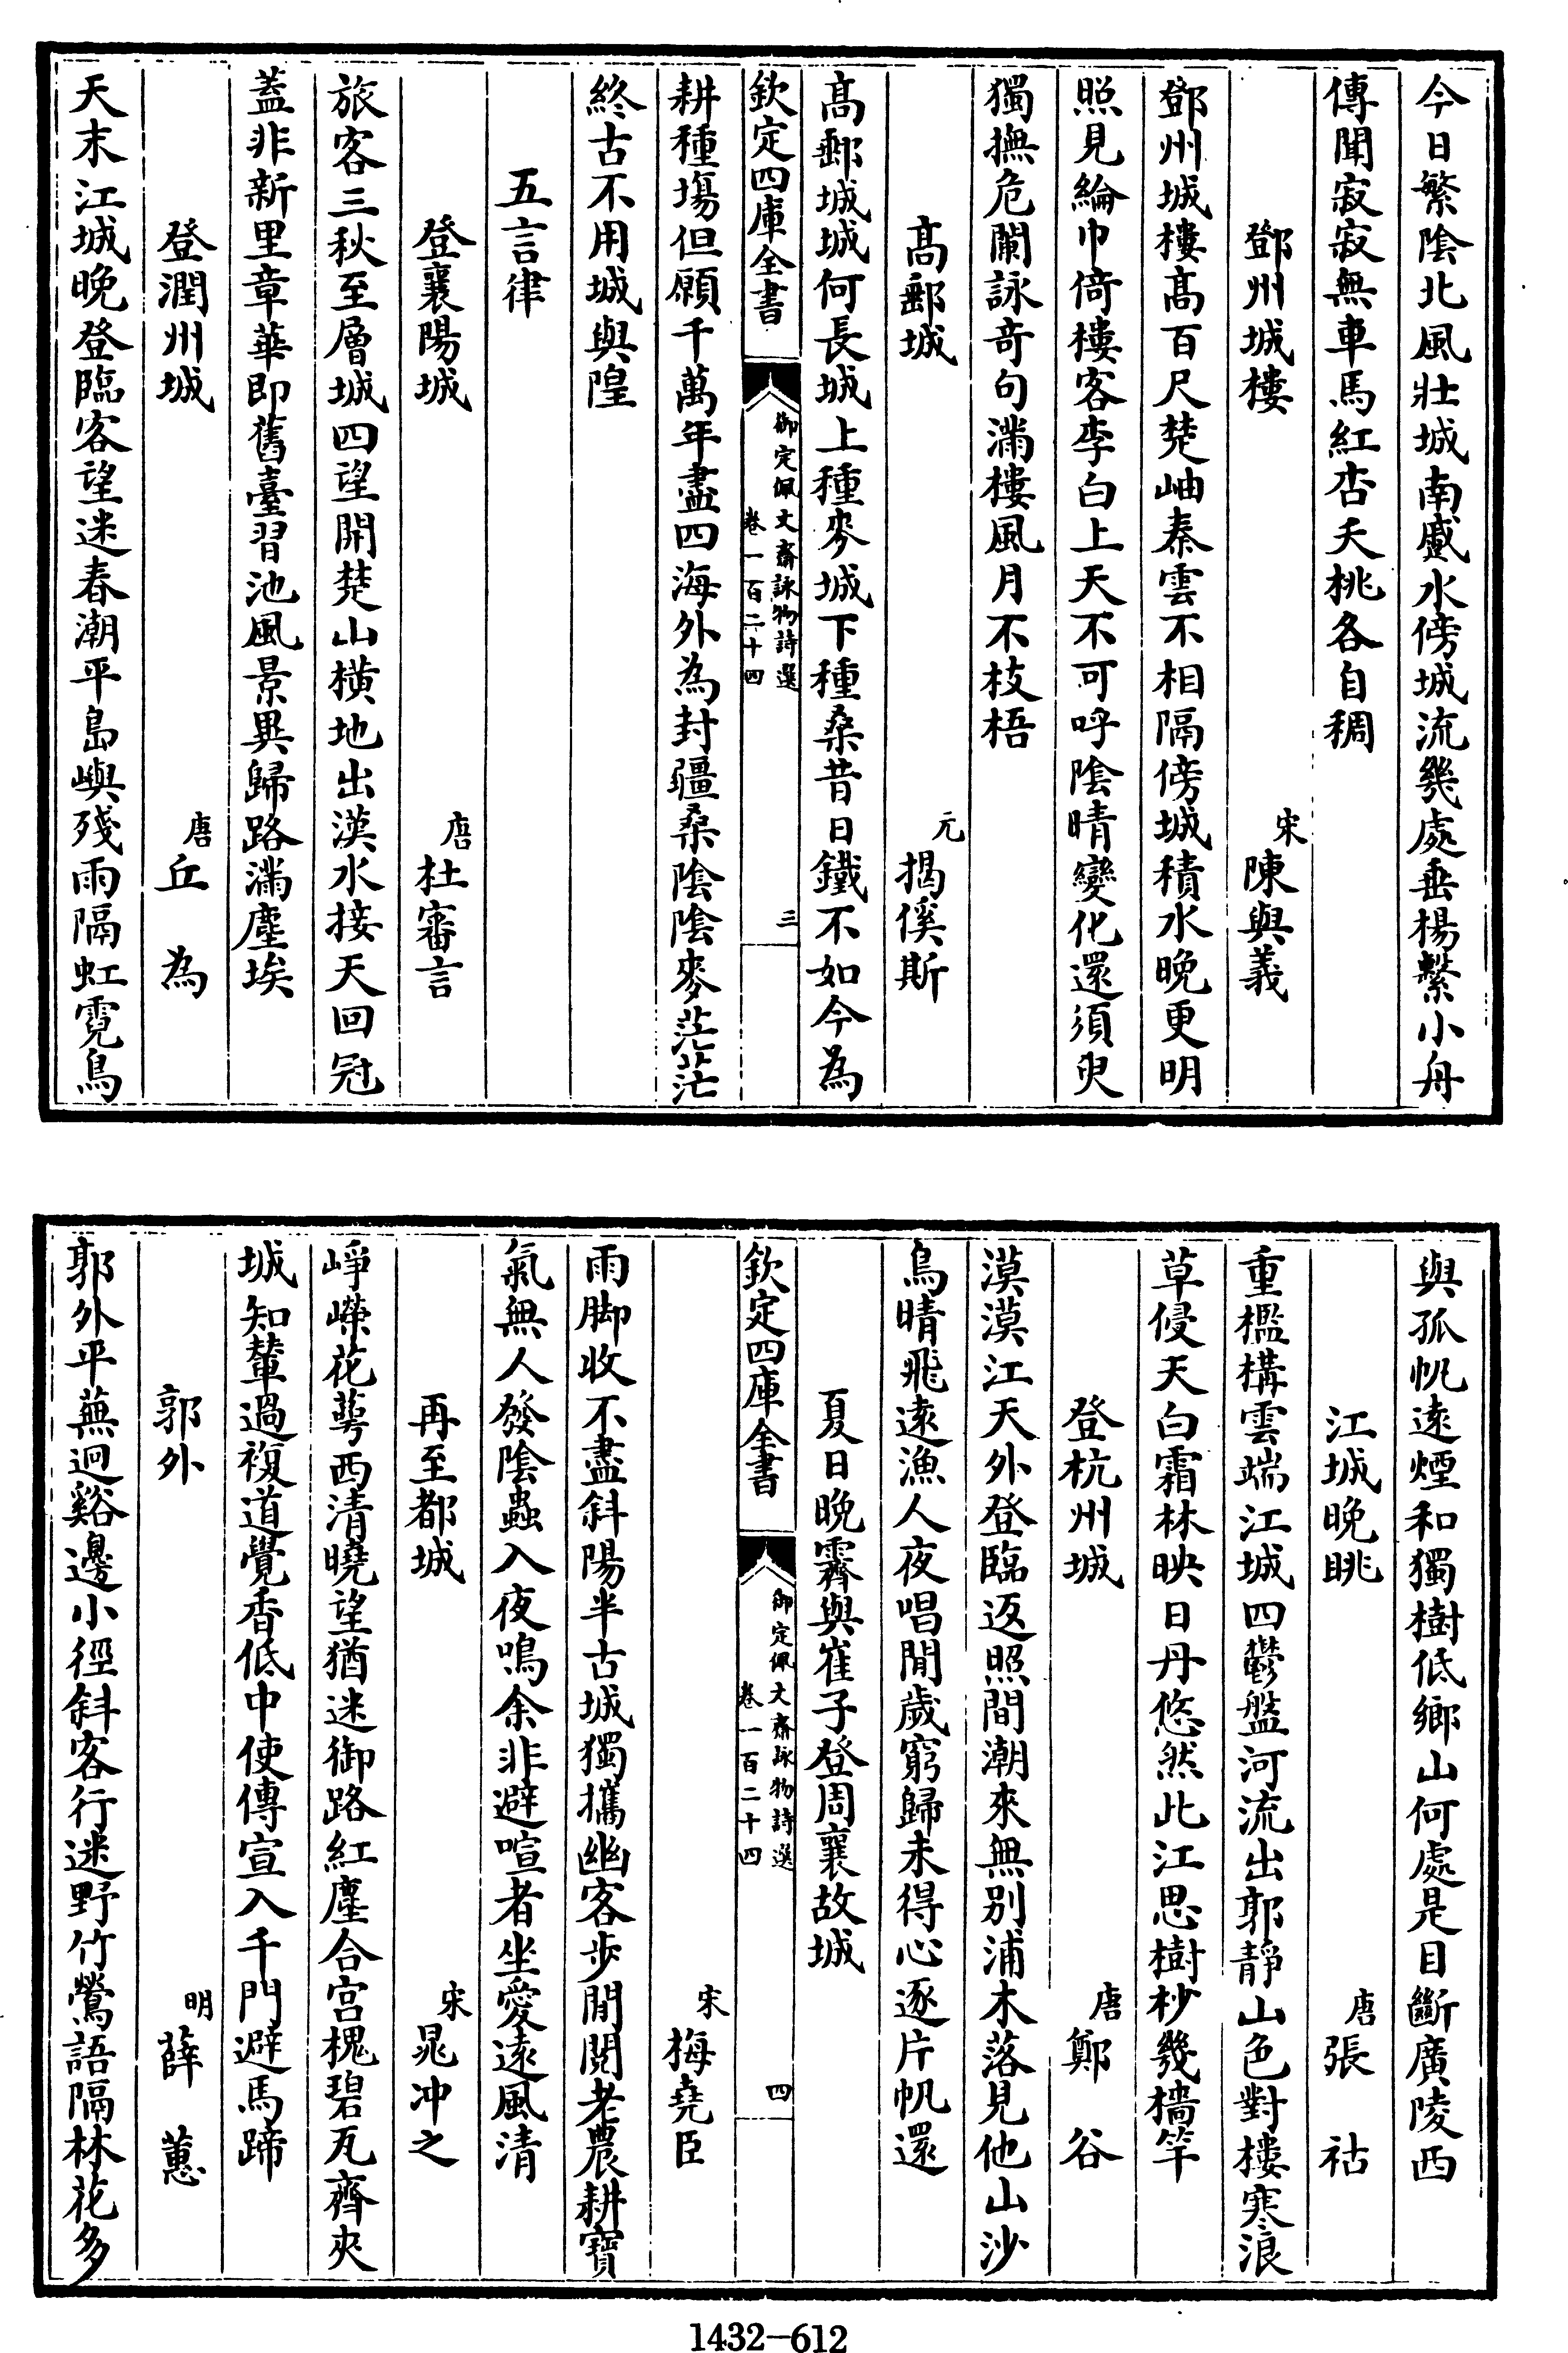 今日繁陰北風壯城南盛水傍城流幾處垂楊繫小舟
傳聞寂寂無車馬紅杏夭桃各自稠
鄧州城樓
宋陳與義
鄧州城樓高百尺楚岫秦雲不相隔傍城積水晚更明
照見綸巾倚樓客李白上天不可呼陰晴變化還須臾
獨撫危闌詠奇句滿樓風月不枝梧
高郵城
元揭傒斯
高郵城城何長城上種麥城下種桑昔日鐵不如今為
欽定四庫全書
御定佩文齋詠物詩選
卷一百二十四
三
耕種塲但願千萬年盡四海外為封疆桑陰陰麥茫茫
終古不用城與隍
五言律
登襄陽城
唐杜審言
旅客三秋至層城四望開楚山橫地出漢水接天回冠
蓋非新里章華即舊臺習池風景異歸路滿塵埃
登潤州城
唐丘為
天末江城晚登臨客望迷春潮平島嶼殘雨隔虹霓鳥
與孤帆遠煙和獨樹低鄉山何處是目斷廣陵西
江城晚眺
唐張祜
重檻構雲端江城四鬱盤河流出郭靜山色對樓寒浪
草侵天白霜林映日丹悠然此江思樹杪幾檣竿
登杭州城
唐鄭谷
漠漠江天外登臨返照間潮來無别浦木落見他山沙
鳥晴飛遠漁人夜唱閒歲窮歸未得心逐片帆還
夏日晚霽與崔子登周襄故城
欽定四庫全書
御定佩文齋詠物詩選
卷一百二十四
四
宋梅堯臣
雨脚收不盡斜陽半古城獨攜幽客步閒閱老農耕寶
氣無人發陰蟲入夜鳴余非避喧者坐愛遠風清
再至都城
宋晁冲之
崢嶸花萼西清曉望猶迷御路紅塵合宫槐碧瓦齊夾
城知輦過複道覺香低中使傳宣入千門避馬蹄
郭外
明薛蕙
郭外平蕪迥谿邊小徑斜客行迷野竹鶯語隔林花多
1432-612